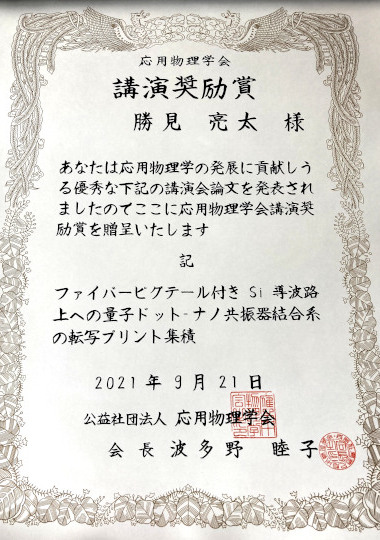 応用物理学会
講演奨励賞
勝見 亮太 様
あなたは応用物理学の発展に貢献しう
る優秀な下記の講演会論文を発表され
ましたのでここに応用物理学会講演奨
励賞を贈呈いたします
記
ファイバーピグテール付き Si 導波路
上への量子ドット-ナノ共振器結合系
の転写プリント集積
2021 年 9 月 21 日
公益社団法人 応用物理学会
会 長 波 多 野 睦 子